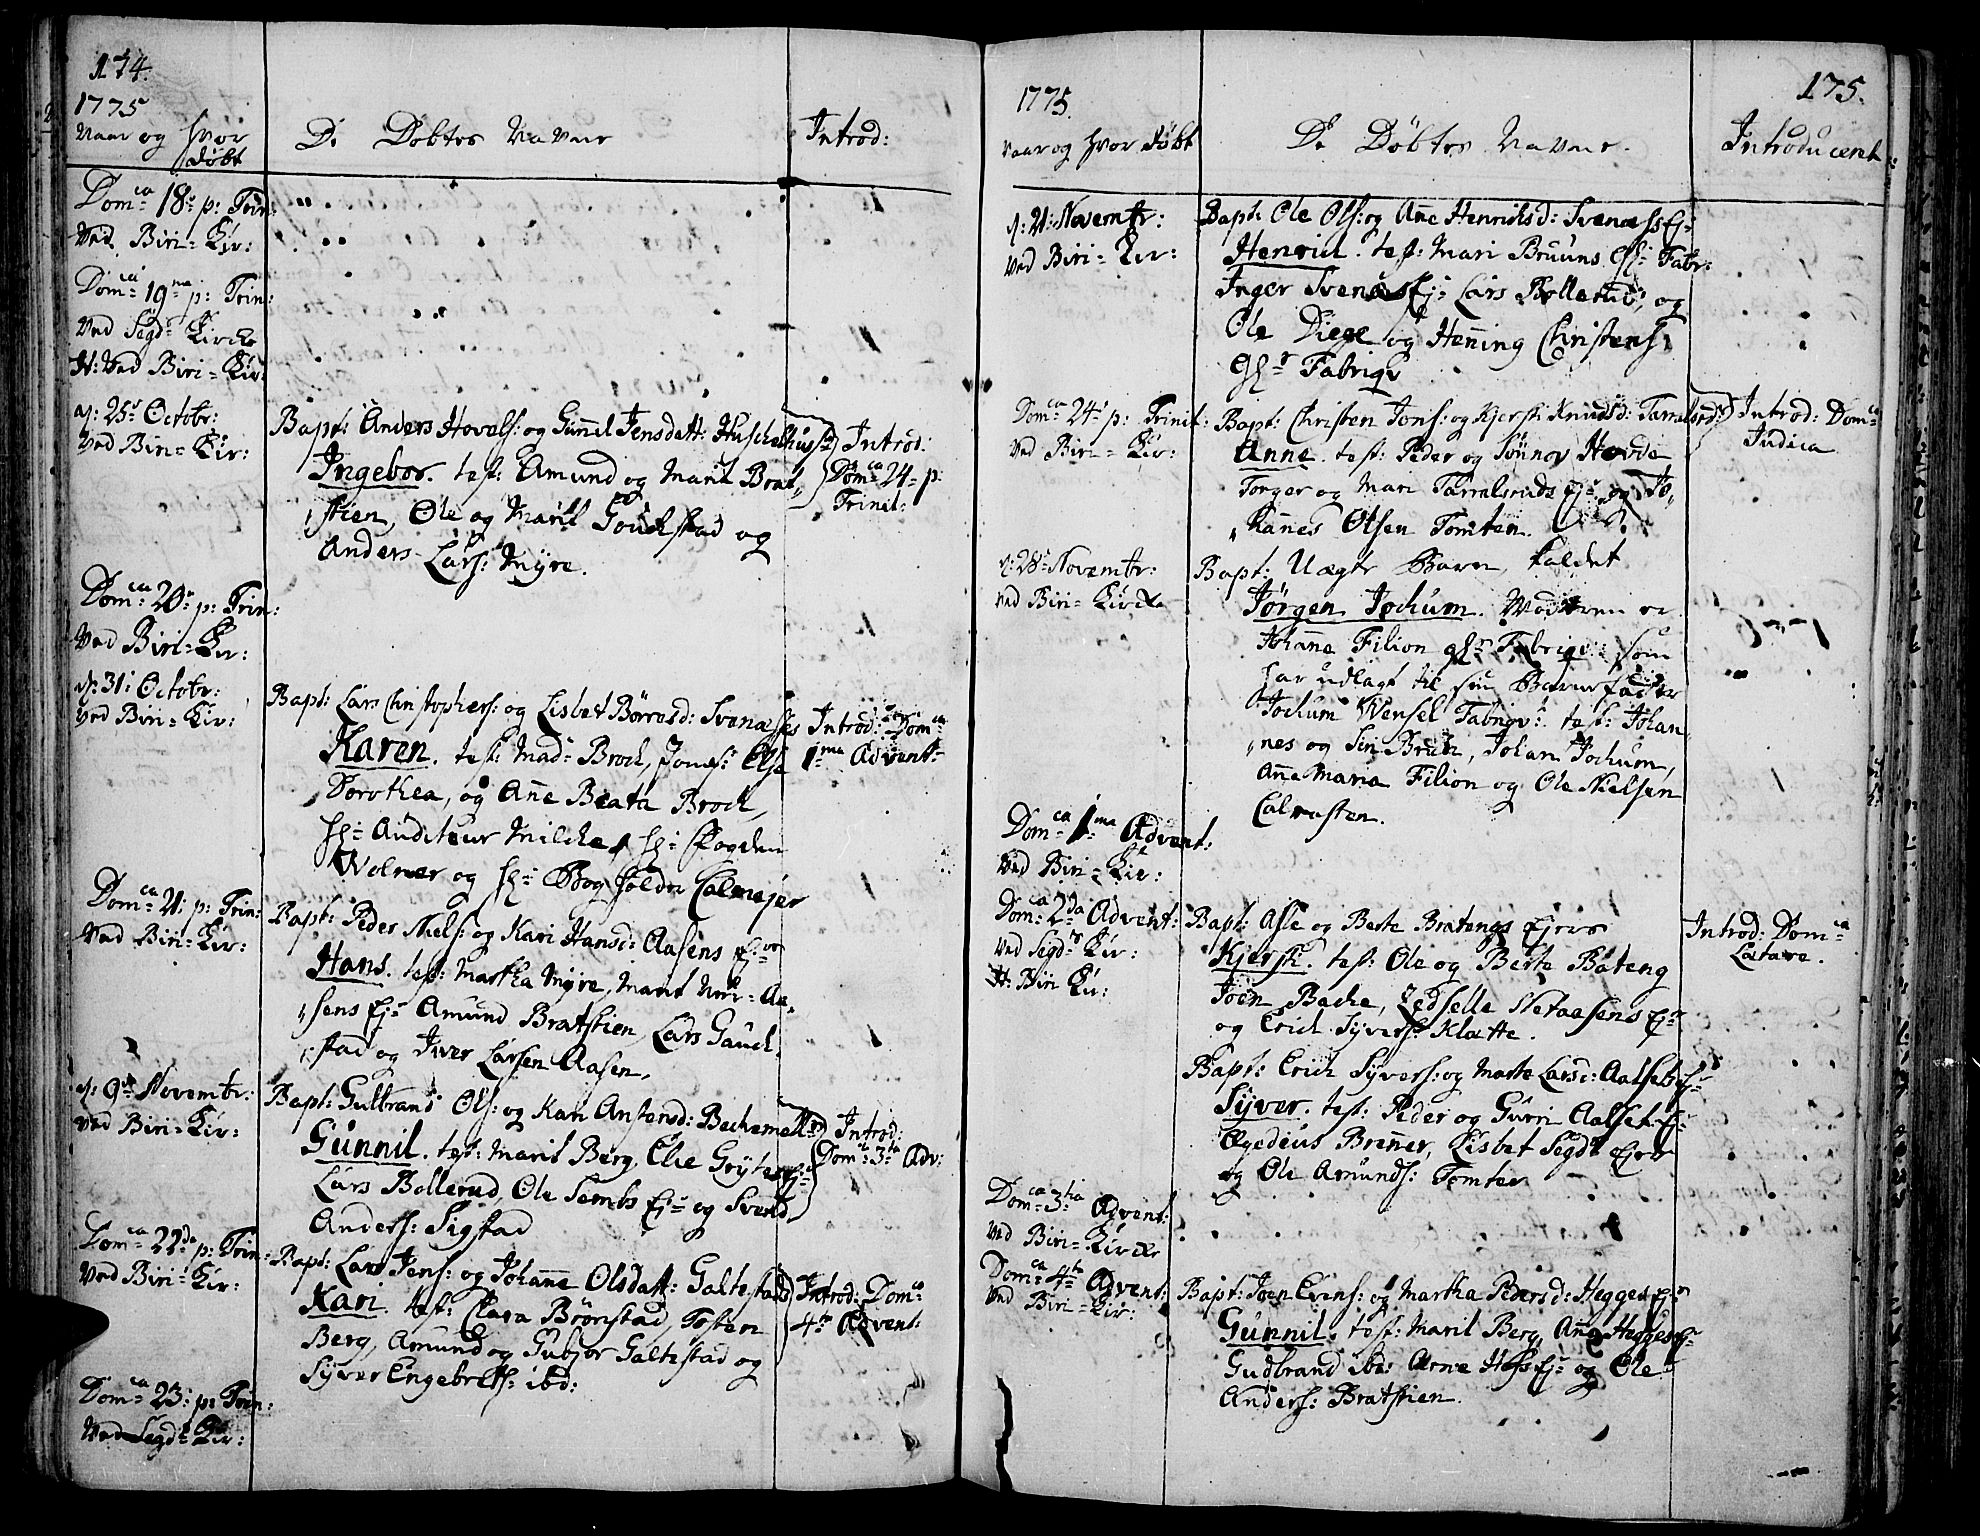 174.
1775
Naar og hvor
Døbt
De Døbtes Navne
Introd:
Dom:ca 18de p: Trin:
Ved Biri-Kir:
Dom:ca 19na p: Trin:
Ved Segd: Kirche
H: Ved Biri-Kir:
d: 25de Octobr:
Ved Biri-Kir:
Bapt: Anders Hovels: og Gunnil Jensdatt: Huschelhus
Ingebor. test: Amund og Marit Brat„
„stien, Ole og Marit Gouchstad og
Anders Lars: Myre.
Introd:
Dom:ca 24 p:
Trinit:
Dom:ca 20de p: Trin:
Ved Biri-Kir:
d: 31: Octobr:
Ved Biri-Kir:
Bapt: Lars Christophers: og Lisbet Børresd: Svenæsses
Karen. test: Mad: Broch, Jomf: Else
Dorothea, og Anne Beata Broch,
Hr: Auditeur Milche, Hr: Fogden
Wolmer og Hr: Bogholder Calmejer
Introd: Dom:ca
1ma Advent:
Dom:ca 21: p: Trin:
Ved Biri-Kir:
Bapt: Peder Niels: og Kari Hansd: Aasens Ejer
Hans. test: Martha Myre, Marit Aa„
„sens Ej: Amund Bratstien, Lars Gauch„
„stad og Iver Larsen Aasen,
d: 9de Novembr:
Ved Biri-Kir:
Bapt: Gulbrand Ols: og Kari Anstensd: Bechemell:
Gunnil. test: Marit Berg, Elie Gryte Ej:
Lars Bollerud, Ole Sembs Ej: og Svend
Anders: Sigstad
Introd:
Dom:ca 3tia Adv:
Dom:ca 22da p: Trin:
Ved Biri-Kir:
Bapt: Lars Jens: og Johanne Olsdatt: Galtestad
Kari. test: Clara Brønstad, Tosten
Berg, Amund og Gubjor Galtestad og
Syver Engebrets: ibd:
Introd: Dom:ca
4ta Advent:
Dom:ca 23: p: Trin:
Ved Segd: Kir:
1775.
175.
Naar og hvor Døbt
De Døbtes Navne.
Introducent:
d: 21: Novembr:
Ved Biri-Kir:
Bapt: Ole Ols: og Anne Henrichsd: Svenæss Ej:
Henrich. test: Mari Bruuns Gl: Fabr:
Inger Svenæs Ej: Lars Bollerud, og
Ole Diege og Henning Christens:
Gl: Fabriqv
Dom:ca 24de p: Trinit:
Ved Biri-Kir:
Bapt: Christen Jons: og Kjersti Knudsd: Tarralsrud
Anne. test: Peder og Sønnov Hovde
Torger og Mari Tarralsruds Ej: og Jo„
„hannes Olsen Tomten.
Introd: Dom:ca
Judica
d: 28de Novembr:
Ved Biri-Kirche
Bapt: Uægte Barn, kaldet
Jørgen Jochum. Moderen er
Johanne Filion Gl: Fabriqv: som
har udlagt til sin Barnefader
Jochum Wensel Fabriqv: test: Johan„
„nes og Siri Brun, Johan Jochum,
Anne Maria Filion og Ole Nielsen
Calvasten.
Dom:ca 1ma Advent:
Ved Biri-Kir:
Dom:ca 2da Advent:
Ved Segd: Kir:
H: Biri Kir:
Bapt: Asle og Berte Bratengs Ejere
Kjersti. test: Ole og Berte Båteng
Joen Bache, Zedselle Netaasens Ej:
og Erich Syvers: Klætte.
Introd: Dom:ca
Lætare.
Bapt: Erich Syvers: og Marte Larsd: Aalset
Syver. test: Peder og Gurri Aalset Ej:
Egedeus Brenner, Lisbet Segd: Ejere
og Ole Amunds: Tomten
Dom:ca 3tia Advent:
Ved Biri-Kirche
Dom:ca 4ta Advent:
Ved Biri-Kir:
Bapt: Joen Evens: og Martha Pedersd: Hegges Ej:
Gunnil. test: Marit Berg, Anne Hegges Ej:
Gudbrand ibd: Arne Hofs Ej: og Ole
Anders: Bratstien.